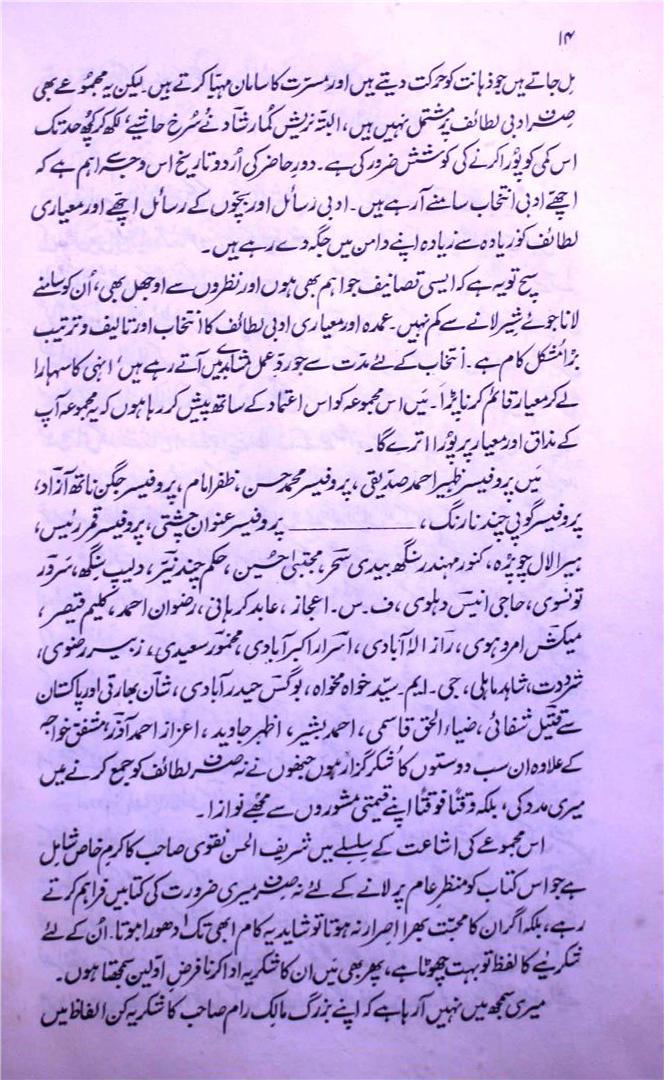 ۱۴
مِل جاتے ہیں جو ذہانت کو حرکت دیتے ہیں اور مسرّت کا سامان مہیّا کرتے ہیں۔ لیکن یہ مجموعے بھی
صرف ادبی لطائف پر مشتمل نہیں ہیں، البتہ نریش کمار شاد نے سُرخ حاشیے، لکھ کر کچھ حد تک
اس کمی کو پورا کرنے کی کوشش ضرور کی ہے۔ دورِ حاضر کی اُردو تاریخ اس وجہ سے اہم ہے کہ
اچھے ادبی انتخاب سامنے آرہے ہیں۔ ادبی رسائل اور بچّوں کے رسائل اچھے اور معیاری
لطائف کو زیادہ سے زیادہ اپنے دامن میں جگہ دے رہے ہیں۔
سچ تو یہ ہے کہ ایسی تصانیف جو اہم بھی ہوں اور نظروں سے اوجھل بھی، اُن کو سامنے
لانا جوئے شیر لانے سے کم نہیں۔ عمدہ اور معیاری ادبی لطائف کا انتخاب اور تالیف و ترتیب
بڑا مشکل کام ہے۔ انتخاب کے لئے مدّت سے جو ردِّ عمل مشاہدے میں آتے رہے ہیں، انہی کا سہارا
لے کر معیار قائم کرنا پڑا۔ مَیں اس مجموعہ کو اس اعتماد کے ساتھ پیش کر رہا ہوں کہ یہ مجموعہ آپ
کے مذاق اور معیار پر پورا اترے گا۔
مَیں پروفیسر ظہیر احمد صدیقی، پروفیسر محمد حسن، ظفر امام، پروفیسر جگن ناتھ آزاد،
پروفیسر گوپی چند نارنگ، ــــــــــــــ پروفیسر عنوان چشتی، پروفیسر قمر رئیس،
ہیرا لال چوپڑہ، کنور مہندر سنگھ بیدی سحر، مجتبیٰ حسین، حکم چند نیّر، دلیپ سنگھ، سرور
تونسوی، حاجی انیس دہلوی، ف۔ س۔ اعجاز، عابد کرہانی، رضوان احمد، کلیم قیصر،
میکش امروہوی، راز الہ آبادی، اسرار اکبر آبادی، مخمور سعیدی، زبیر رضوی،
شرددت، شاہد ماہلی، جی۔ ایم۔ سیّد خواہ مخواہ، بوگس حیدر آبادی، شان بھارتی اور پاکستان
سے قتیل شفائی، ضیاء الحق قاسمی، احمد بشیر، اظہر جاوید، اعزاز احمد آذر، مشفق خواجہ
کے علاوہ ان سب دوستوں کا شکر گزار ہوں جنھوں نے نہ صرف لطائف کو جمع کرنے میں
میری مدد کی، بلکہ وقتاً فوقتاً اپنے قیمتی مشوروں سے مجھے نوازا۔
اس مجموعے کی اشاعت کے سلسلے میں شریف الحسن نقوی صاحب کا کرمِ خاص شامل
ہے جو اس کتاب کو منظرِ عام پر لانے کے لئے نہ صرف میری ضرورت کی کتابیں فراہم کرتے
رہے، بلکہ اگر ان کا محبّت بھرا اصرار نہ ہوتا تو شاید یہ کام ابھی تک ادھورا ہوتا۔ اُن کے لئے
شکریئے کا لفظ تو بہت چھوٹا ہے، پھر بھی مَیں ان کا شکریہ ادا کرنا فرضِ اوّلین سمجھتا ہوں۔
میری سمجھ میں نہیں آرہا ہے کہ اپنے بزرگ مالک رام صاحب کا شکریہ کن الفاظ میں